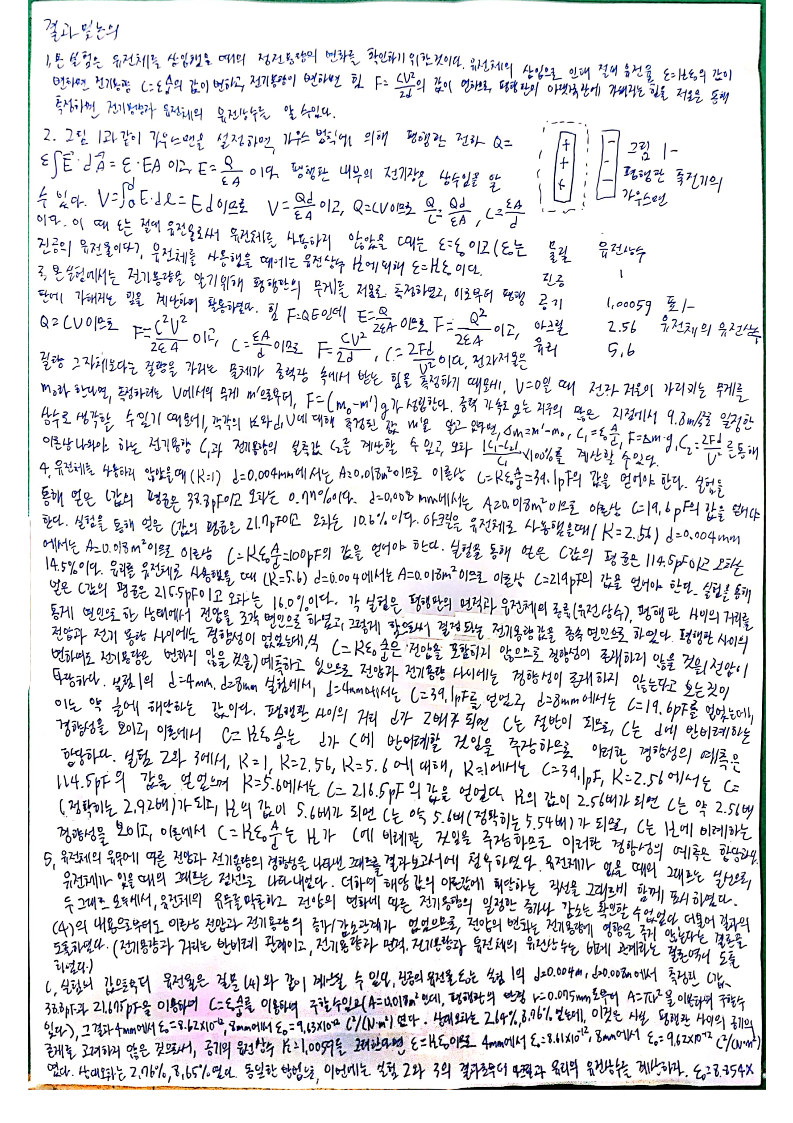 결과 및 논의
1. 본 실험은 유전체를 삽입했을 때의 정전용량의 변화를 확인하기 위한 것이다. 유전체의 삽입으로 인해 절대 유전율 ε=κε₀의 값이
변하면 전기용량 C=ε A/d의 값이 변하고, 전기용량이 변하면 힘 F= CV²/2d의 값이 변하므로, 평행판이 아래쪽판에 가해지는 힘을 저울을 통해
측정하면 전기용량과 유전체의 유전상수를 알 수 있다.
2. 그림 1과 같이 가우스면을 설정하면, 가우스 법칙에 의해 평행한 전하 Q=
ε∫E·dA = ε·EA 이고, E= Q/εA 이다. 평행판 내부의 전기장은 상수임을 알
수 있다. V=∫₀ᵈ E·dℓ = Ed 이므로 V= Qd/εA 이고, Q=CV이므로 Q/C = Qd/εA, C= εA/d
이다. 이 때 ε는 절대 유전율로서 유전체를 사용하지 않았을 때는 ε=ε₀이고(ε₀는
진공의 유전율이다), 유전체를 사용했을 때에는 유전상수 κ에 의해 ε=κε₀이다.
그림 1-
평행판 축전기의
가우스면
물질 유전상수
진공 1
공기 1.00059
아크릴 2.56
유리 5.6
표 1-
유전체의 유전상수
3. 본 실험에서는 전기용량을 알기 위해 평행판의 무게를 저울로 측정하였고, 이로부터 평행
판에 가해지는 힘을 계산하여 활용하였다. 힘 F=QE인데 E= Q/2εA 이므로 F= Q²/2εA 이고,
Q=CV이므로 F= C²V²/2εA 이고, C= εA/d 이므로 F= CV²/2d, C= 2Fd/V² 이다. 전자저울은
질량 그 자체보다는 질량을 가지는 물체가 중력장 속에서 받는 힘을 측정하기 때문에, V=0일 때 전자 저울이 가리키는 무게를
m₀라 한다면, 측정하려는 V에서의 무게 m'으로부터, F=(m₀-m')g가 성립한다. 중력 가속도 g는 지구의 많은 지점에서 9.8m/s²로 일정한
상수로 생각할 수 있기 때문에, 각각의 κ와 d, V에 대해 측정된 값 m'을 알고 있다면, Δm=m'-m₀, C₁=ε A/d, F=Δm·g, C₂= 2Fd/V² 를 통해
이론상 나와야 하는 전기용량 C₁과 전기용량의 실측값 C₂를 계산할 수 있고, 오차 |C₁-C₂|/C₁ ×100%를 계산할 수 있다.
4. 유전체를 사용하지 않았을 때(K=1) d=0.004mm에서는 A=0.018m²이므로 이론상 C=Kε₀ A/d =39.1pF의 값을 얻어야 한다. 실험을
통해 얻은 C값의 평균은 38.8pF이고 오차는 0.77%이다. d=0.008mm에서는 A=0.018m²이므로 이론상 C=19.6pF의 값을 얻어야
한다. 실험을 통해 얻은 C값의 평균은 21.7pF이고 오차는 10.6%이다. 아크릴을 유전체로 사용했을 때(K=2.56) d=0.004mm
에서는 A=0.018m²이므로 이론상 C=Kε₀ A/d =100pF의 값을 얻어야 한다. 실험을 통해 얻은 C값의 평균은 114.5pF이고 오차는
14.5%이다. 유리를 유전체로 사용했을 때(K=5.6) d=0.004에서는 A=0.018m²이므로 이론상 C=219pF의 값을 얻어야 한다. 실험을 통해
얻은 C값의 평균은 215.5pF이고 오차는 16.0%이다. 각 실험은 평행판의 면적과 유전체의 종류(유전상수), 평행판 사이의 거리를
통제 변인으로 한 상태에서 전압을 조작 변인으로 하였고, 그렇게 함으로써 결정되는 전기용량 값을 종속 변인으로 하였다. 평행판 사이의
전압과 전기 용량 사이에는 경향성이 없었는데, 식 C=Kε₀ A/d 은 전압을 포함하지 않으므로 경향성이 존재하지 않을 것을(전압이
변하여도 전기용량은 변하지 않을 것을) 예측하고 있으므로 전압과 전기용량 사이에는 경향성이 존재하지 않는다고 보는 것이
타당하다. 실험 1의 d=4mm, d=8mm 실험에서, d=4mm에서는 C=39.1pF를 얻었고, d=8mm에서는 C=19.6pF를 얻었는데,
이는 약 절반에 해당하는 값이다. 평행판 사이의 거리 d가 2배가 되면 C는 절반이 되므로, C는 d에 반비례하는
경향성을 보이고, 이론에서 C=Kε₀ A/d 는 d가 C에 반비례할 것임을 주장하므로 이러한 경향성의 예측은
합당하다. 실험 2와 3에서, K=1, K=2.56, K=5.6에 대해, K=1에서는 C=39.1pF, K=2.56에서는 C=
114.5pF의 값을 얻었으며 K=5.6에서는 C=216.5pF의 값을 얻었다. κ의 값이 2.56배가 되면 C는 약 2.56배
(정확히는 2.92배)가 되고, κ의 값이 5.6배가 되면 C는 약 5.6배(정확히는 5.54배)가 되므로, C는 κ에 비례하는
경향성을 보이고, 이론에서 C=Kε₀ A/d 는 κ가 C에 비례할 것임을 주장하므로 이러한 경향성의 예측은 합당하다.
5. 유전체의 유무에 따른 전압과 전기용량의 경향성을 나타낸 그래프를 결과보고서에 첨부하였다. 유전체가 없을 때의 그래프는 실선으로,
유전체가 있을 때의 그래프는 점선으로 나타내었다. 더하여 해당 값의 이론값에 해당하는 직선을 그래프에 함께 표시하였다.
두 그래프 모두에서, 유전체의 유무를 막론하고 전압의 변화에 따른 전기용량의 일정한 증가나 감소는 확인할 수 없었다. 더불어 결과의
(4)의 내용으로부터도 이론상 전압과 전기용량의 증가/감소관계가 없었으므로, 전압의 변화는 전기용량에 영향을 주지 않는다는 결론을
도출하였다. (전기용량과 거리는 반비례 관계이고, 전기용량과 면적, 전기용량과 유전체의 유전상수는 비례 관계라는 결론 역시 도출
하였다.)
6. 실험의 값으로부터 유전율은 질문 (4)와 같이 계산될 수 있다. 진공의 유전율 ε₀는 실험 1의 d=0.004m, d=0.008m에서 측정된 C값,
38.8pF과 21.675pF을 이용하여 C=ε₀ A/d 를 이용하여 구할 수 있고(A=0.018m²인데, 평행판의 반경 r=0.075mm로부터 A=πr²을 이용하여 구할 수
있다), 그 결과 4mm에서 ε₀=8.62×10⁻¹², 8mm에서 ε₀=9.63×10⁻¹² C²/(N·m²) 였다. 상대오차는 2.64%, 8.76%였는데, 이것은 사실 평행판 사이의 공기의
존재를 고려하지 않은 것으로서, 공기의 유전상수 κ=1.0059를 고려한다면 ε=κε₀이므로 4mm에서 ε₀=8.61×10⁻¹², 8mm에서 ε₀=9.62×10⁻¹² C²/(N·m²)
였다. 상대오차는 2.76%, 8.65%였다. 동일한 방법으로, 이번에는 실험 2와 3의 결과로부터 아크릴과 유리의 유전상수를 계산하자. ε₀=8.854×